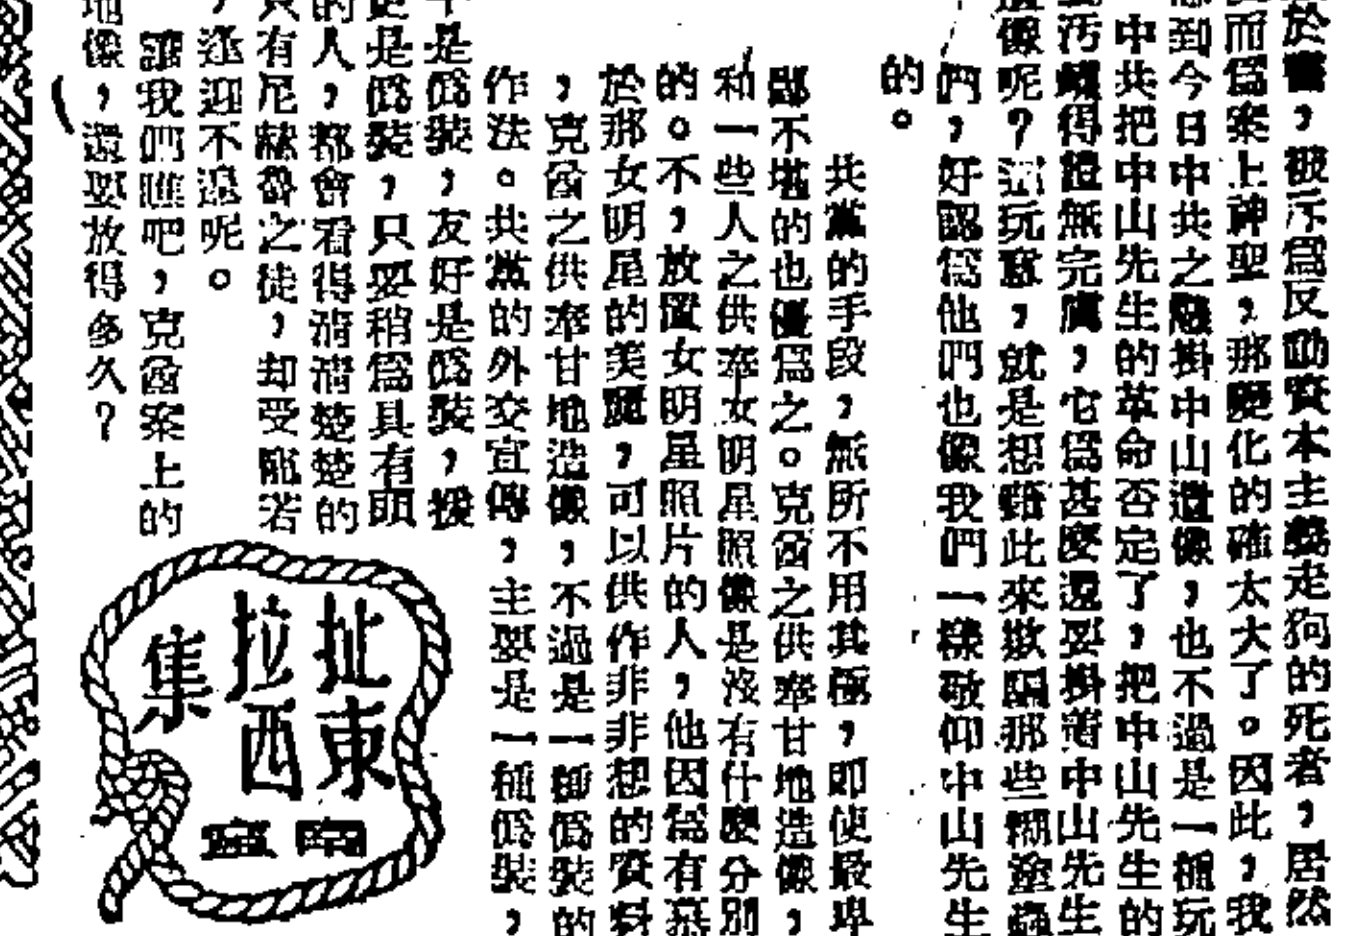 於，被斥爲反動資本主義走狗的死者，居然
而爲案上神聖，那變化的確太大了。因此，我
想到今日中共之懸掛中山遺像，也不過是一種玩
中共把中山先生的革命否定了，把中山先生的
污衊得體無完膚，它爲甚麼還要掛着中山先生
遺像呢？這玩意，就是想藉此來欺騙那些糊塗蟲
們，好認爲他們也像我們一樣敬仰中山先生
的。
共黨的手段，無所不用其極，即使最卑
鄙不堪的也優爲之。克酋之供奉甘地造像，
和一些人之供奉女明星照像是沒有什麼分別
的。不，放置女明星照片的人，他因爲有慕
於那女明星的美麗，可以供作非非想的資料
，克酋之供奉甘地造像，不過是一種僞裝的
作法。共黨的外交宣傳，主要是一種僞裝，
平是僞裝，友好是僞裝，援
更是僞裝，只要稍爲具有頭
的人，都會看得清清楚楚的
只有尼赫魯之徒，却受寵若
，逢迎不遑呢。
讓我們瞧吧，克酋案上的
地像，還要放得多久？
扯東
拉西
集